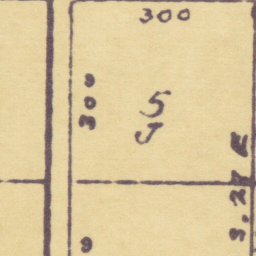 300
300
5
J
3.27 E